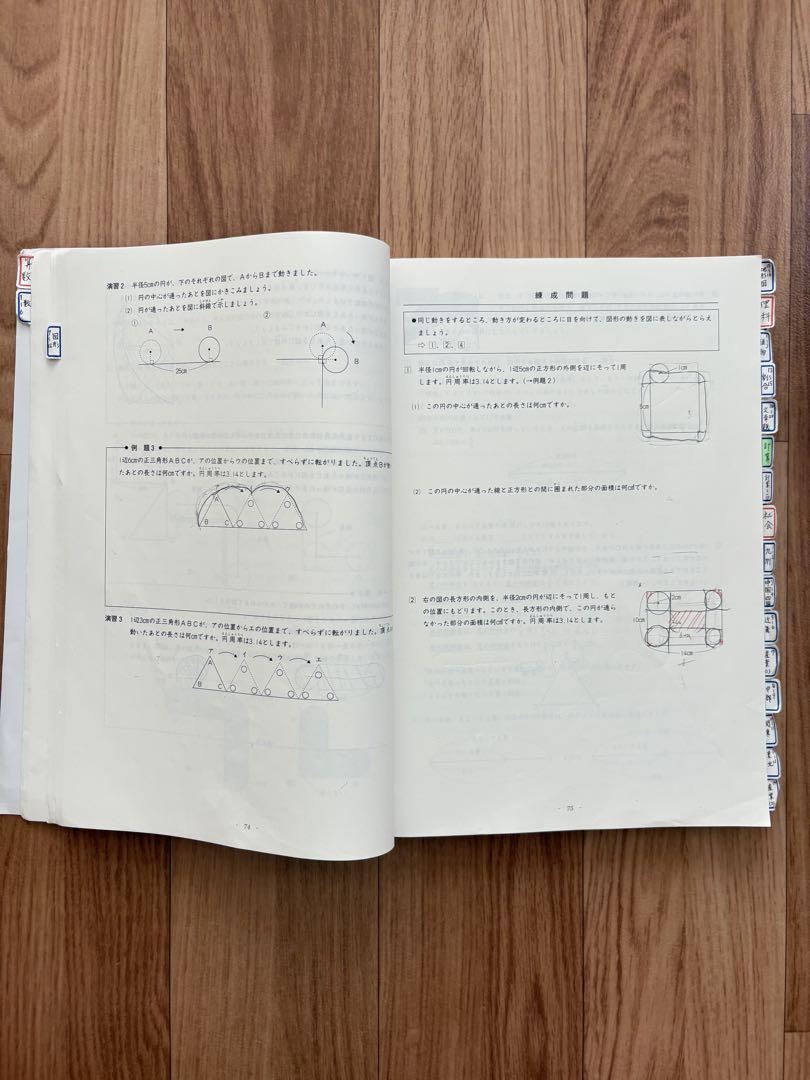 演習2 半径5cmの円が、下のそれぞれの図で、AからBまで動きました。
(1) 円の中心が通ったあとを図にかきこみましょう。
(2) 円が通ったあとを図に斜線で示しましょう。
①
②
A
B
25cm
A
B
例 題 3
1辺6cmの正三角形ABCが、アの位置からウの位置まで、すべらずに転がりました。頂点Bが
たあとの長さは何cmですか。円周率は3.14とします。
ア
ウ
A
B
C
演習3 1辺3cmの正三角形ABCが、アの位置からエの位置まで、すべらずに転がりました。頂
動いたあとの長さは何cmですか。円周率は3.14とします。
ア イ ウ エ
A
B
C
- 74 -
練 成 問 題
●同じ動きをするところ、動き方が変わるところに目を向けて、図形の動きを図に表しながらとらえ
ましょう。
⇨ 1、2、4
1 半径1cmの円が回転しながら、1辺5cmの正方形の外側を辺にそって1周
します。円周率は3.14とします。(→例題2)
(1) この円の中心が通ったあとの長さは何cmですか。
1cm
5cm
(2) この円の中心が通った線と正方形との間に囲まれた部分の面積は何cm²ですか。
2 右の図の長方形の内側を、半径2cmの円が辺にそって1周し、もと
の位置にもどります。このとき、長方形の内側で、この円が通ら
なかった部分の面積は何cm²ですか。円周率は3.14とします。
2cm
10cm
14cm
- 75 -
算数
図形
地図
理科
割合
文章題
計算
社会
九州
中国四国
近畿
中部
関東